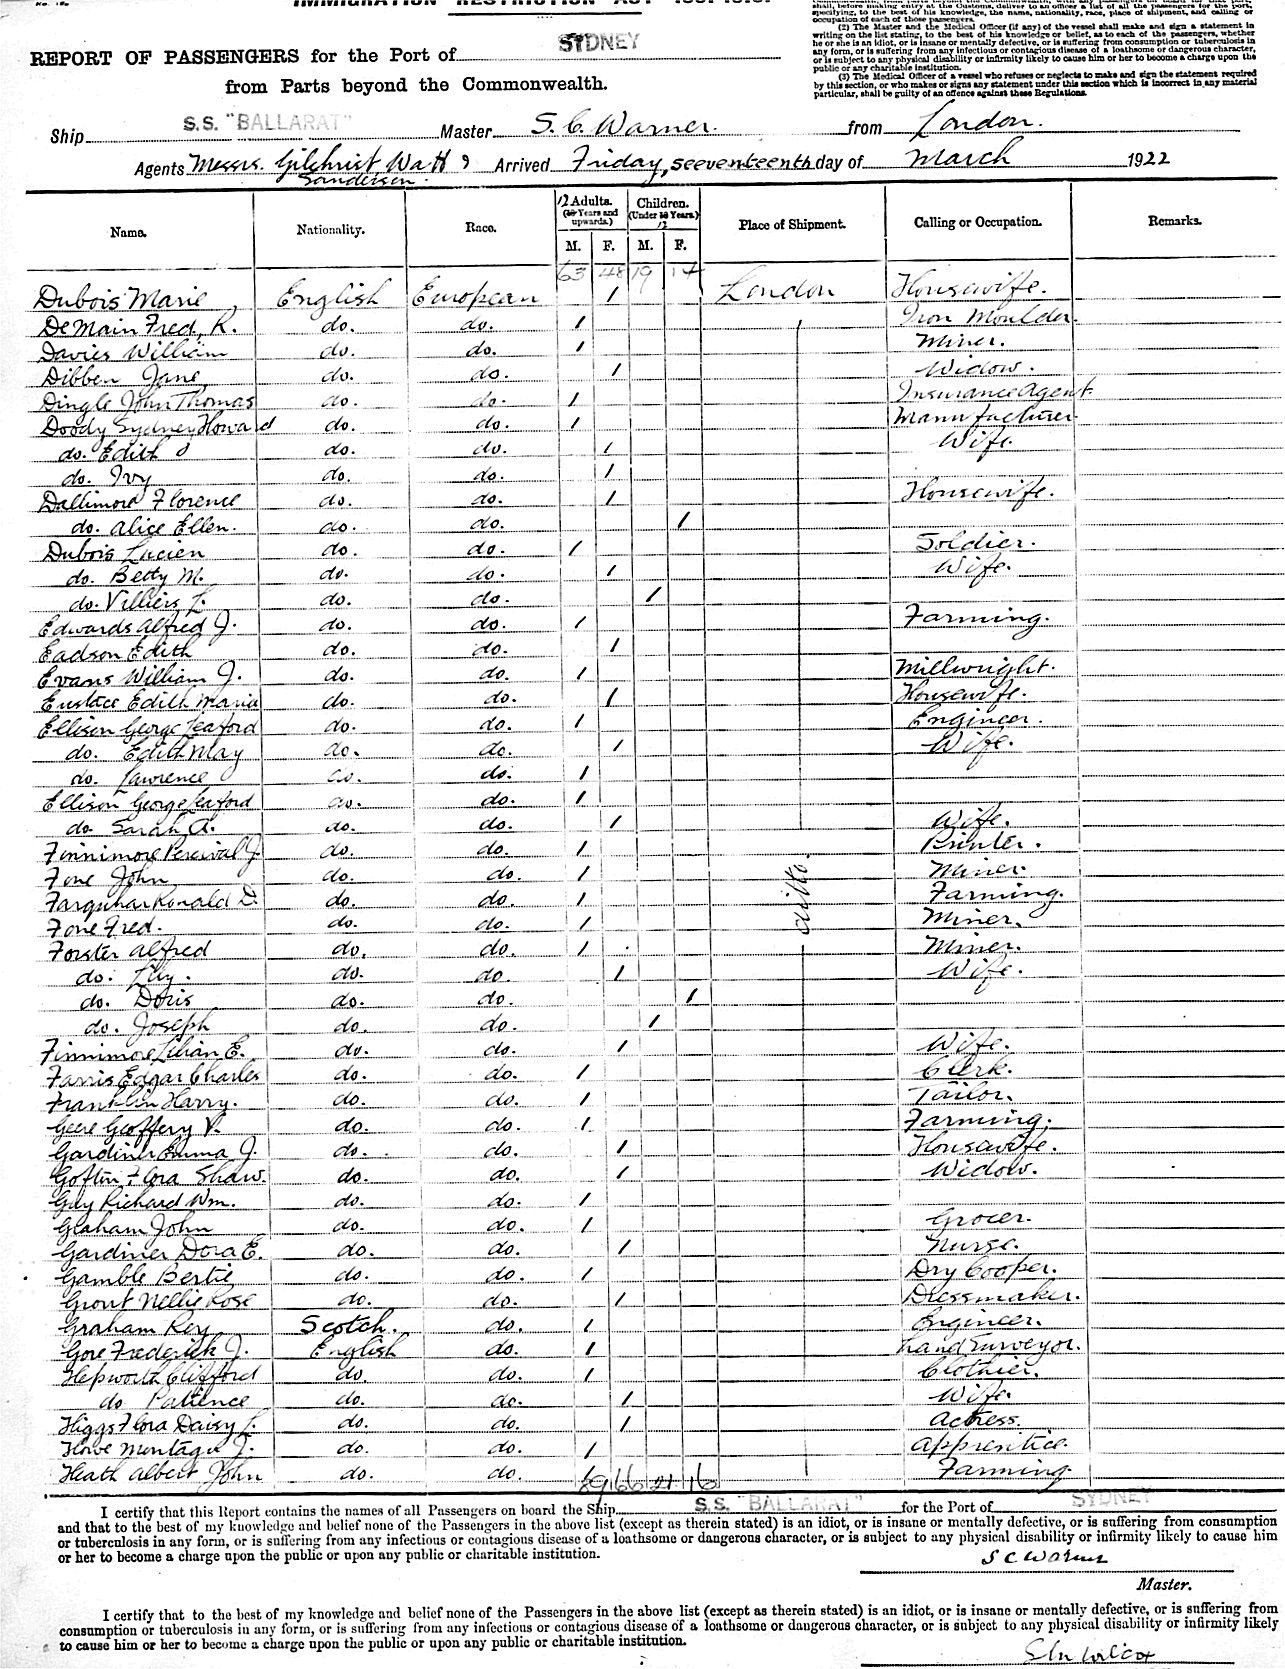 IMMIGRATION RESTRICTION ACT
shall, before making entry at the Customs, deliver to an officer a list of all the passengers for the port,
specifying, to the best of his knowledge, the name, nationality, race, place of shipment, and calling or
occupation of each of those passengers.
(2) The Master and the Medical Officer (if any) of the vessel shall make and sign a statement in
writing on the list stating, to the best of his knowledge or belief, as to each of the passengers, whether
he or she is an idiot, or is insane or mentally defective, or is suffering from consumption or tuberculosis in
any form, or is suffering from any infectious or contagious disease of a loathsome or dangerous character,
or is subject to any physical disability or infirmity likely to cause him or her to become a charge upon the
public or any charitable institution.
(3) The Medical Officer of a vessel who refuses or neglects to make and sign the statement required
by this section, or who makes or signs any statement under this section which is incorrect in any material
particular, shall be guilty of an offence against these Regulations.
REPORT OF PASSENGERS for the Port of SYDNEY
from Parts beyond the Commonwealth.
Ship S.S. "BALLARAT" Master S. C. Warner. from London.
Agents Messrs. Gilchrist, Watt & Sanderson. Arrived Friday, seeventeenth day of March 1922
Name. Nationality. Race. 12 Adults. (Years and upwards.) Children. (Under Years.) 12 Place of Shipment. Calling or Occupation. Remarks.
M. F. M. F.
63 48 19 14
Dubois Marie English European 1 London Housewife.
DeMain Fred, R. do. do. 1 Iron Moulder.
Davies William do. do. 1 Miner.
Dibben Jane do. do. 1 Widow.
Dingle John Thomas do. do. 1 Insurance Agent.
Doody Sydney Howard do. do. 1 Manufacturer
do. Edith do. do. 1 Wife.
do. Ivy do. do. 1
Dallimore Florence do. do. 1 Housewife.
do. Alice Ellen. do. do. 1
Dubois Lucien do. do. 1 Soldier.
do. Betty M. do. do. 1 Wife.
do. Villiers L. do. do. 1
Edwards Alfred J. do. do. 1 Farming.
Eadson Edith do. do. 1
Evans William J. do. do. 1 Millwright.
Eustace Edith Maria do. do. 1 Housewife.
Ellison George Leaford do. do. 1 Engineer.
do. Edith May do. do. 1 Wife.
do. Lawrence do. do. 1
Ellison George Leaford do. do. 1
do. Sarah A. do. do. 1 Wife.
Finnimore Percival J. do. do. 1 Printer.
Fone John do. do. 1 ditto. Miner.
Farquhar Ronald D. do. do. 1 Farming.
Fone Fred. do. do. 1 Miner.
Forster Alfred do. do. 1 Miner.
do. Lily. do. do. 1 Wife.
do. Doris do. do. 1
do. Joseph do. do. 1
Finnimore Lilian E. do. do. 1 Wife.
Farris Edgar Charles do. do. 1 Clerk.
Franklin Harry. do. do. 1 Tailor.
Geere Geoffery V. do. do. 1 Farming.
Gardiner Emma J. do. do. 1 Housewife.
Gofton Flora Shaw. do. do. 1 Widow.
Guy Richard Wm. do. do. 1
Graham John do. do. 1 Grocer.
Gardiner Dora E. do. do. 1 Nurse.
Gamble Bertie do. do. 1 Dry Cooper.
Grout Nellie Rose do. do. 1 Dressmaker.
Graham Rey Scotch. do. 1 Engineer.
Gore Frederick J. English do. 1 Land Surveyor.
Hepworth Clifford do. do. 1 Clothier.
do Patience do. do. 1 Wife.
Higgs Flora Daisy L. do. do. 1 Actress.
Howe Montagu J. do. do. 1 Apprentice.
Heath Albert John do. do. 1 Farming
89 66 21 16
I certify that this Report contains the names of all Passengers on board the Ship S.S. "BALLARAT" for the Port of SYDNEY
and that to the best of my knowledge and belief none of the Passengers in the above list (except as therein stated) is an idiot, or is insane or mentally defective, or is suffering from consumption
or tuberculosis in any form, or is suffering from any infectious or contagious disease of a loathsome or dangerous character, or is subject to any physical disability or infirmity likely to cause him
or her to become a charge upon the public or upon any public or charitable institution.
S C Warner
Master.
I certify that to the best of my knowledge and belief none of the Passengers in the above list (except as therein stated) is an idiot, or is insane or mentally defective, or is suffering from
consumption or tuberculosis in any form, or is suffering from any infectious or contagious disease of a loathsome or dangerous character, or is subject to any physical disability or infirmity likely
to cause him or her to become a charge upon the public or upon any public or charitable institution.
Wilcox